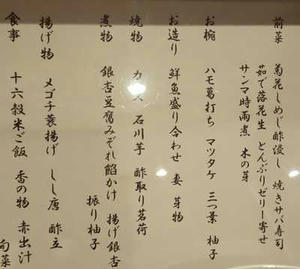 前菜 菊花しめじ酢浸し 焼きサバ寿司
茹で落花生 とんぶりゼリー寄せ
サンマ時雨煮 木の芽
お椀 ハモ葛打ち マツタケ 三つ葉 柚子
お造り 鮮魚盛り合わせ 妻 芽物
焼物 カマス 石川芋 酢取り茗荷
煮物 銀杏豆腐みぞれ餡かけ 揚げ銀杏
振り柚子
揚げ物 メゴチ葉揚げ しし唐 酢立
食事 十六穀米ご飯 香の物 赤出汁
旬菜